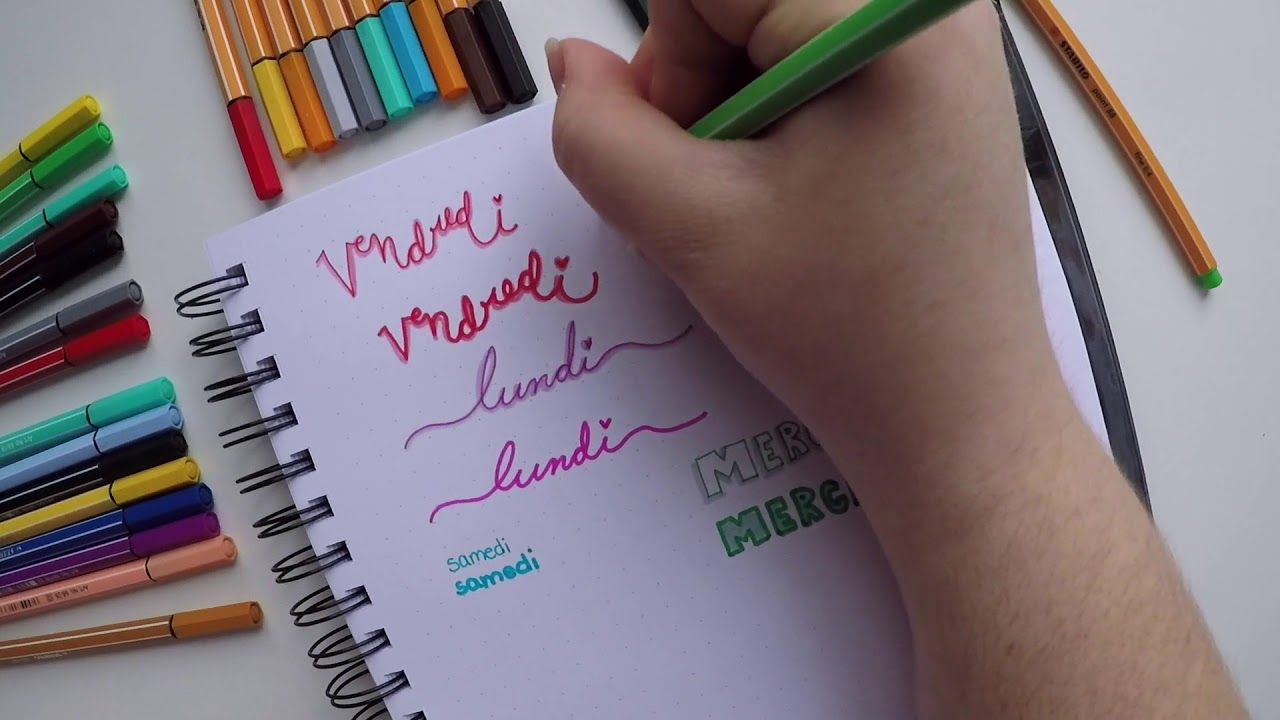 vendredi
vendredi
lundi
lundi
MERC
MERC
samedi
samedi
STABILO
point 88